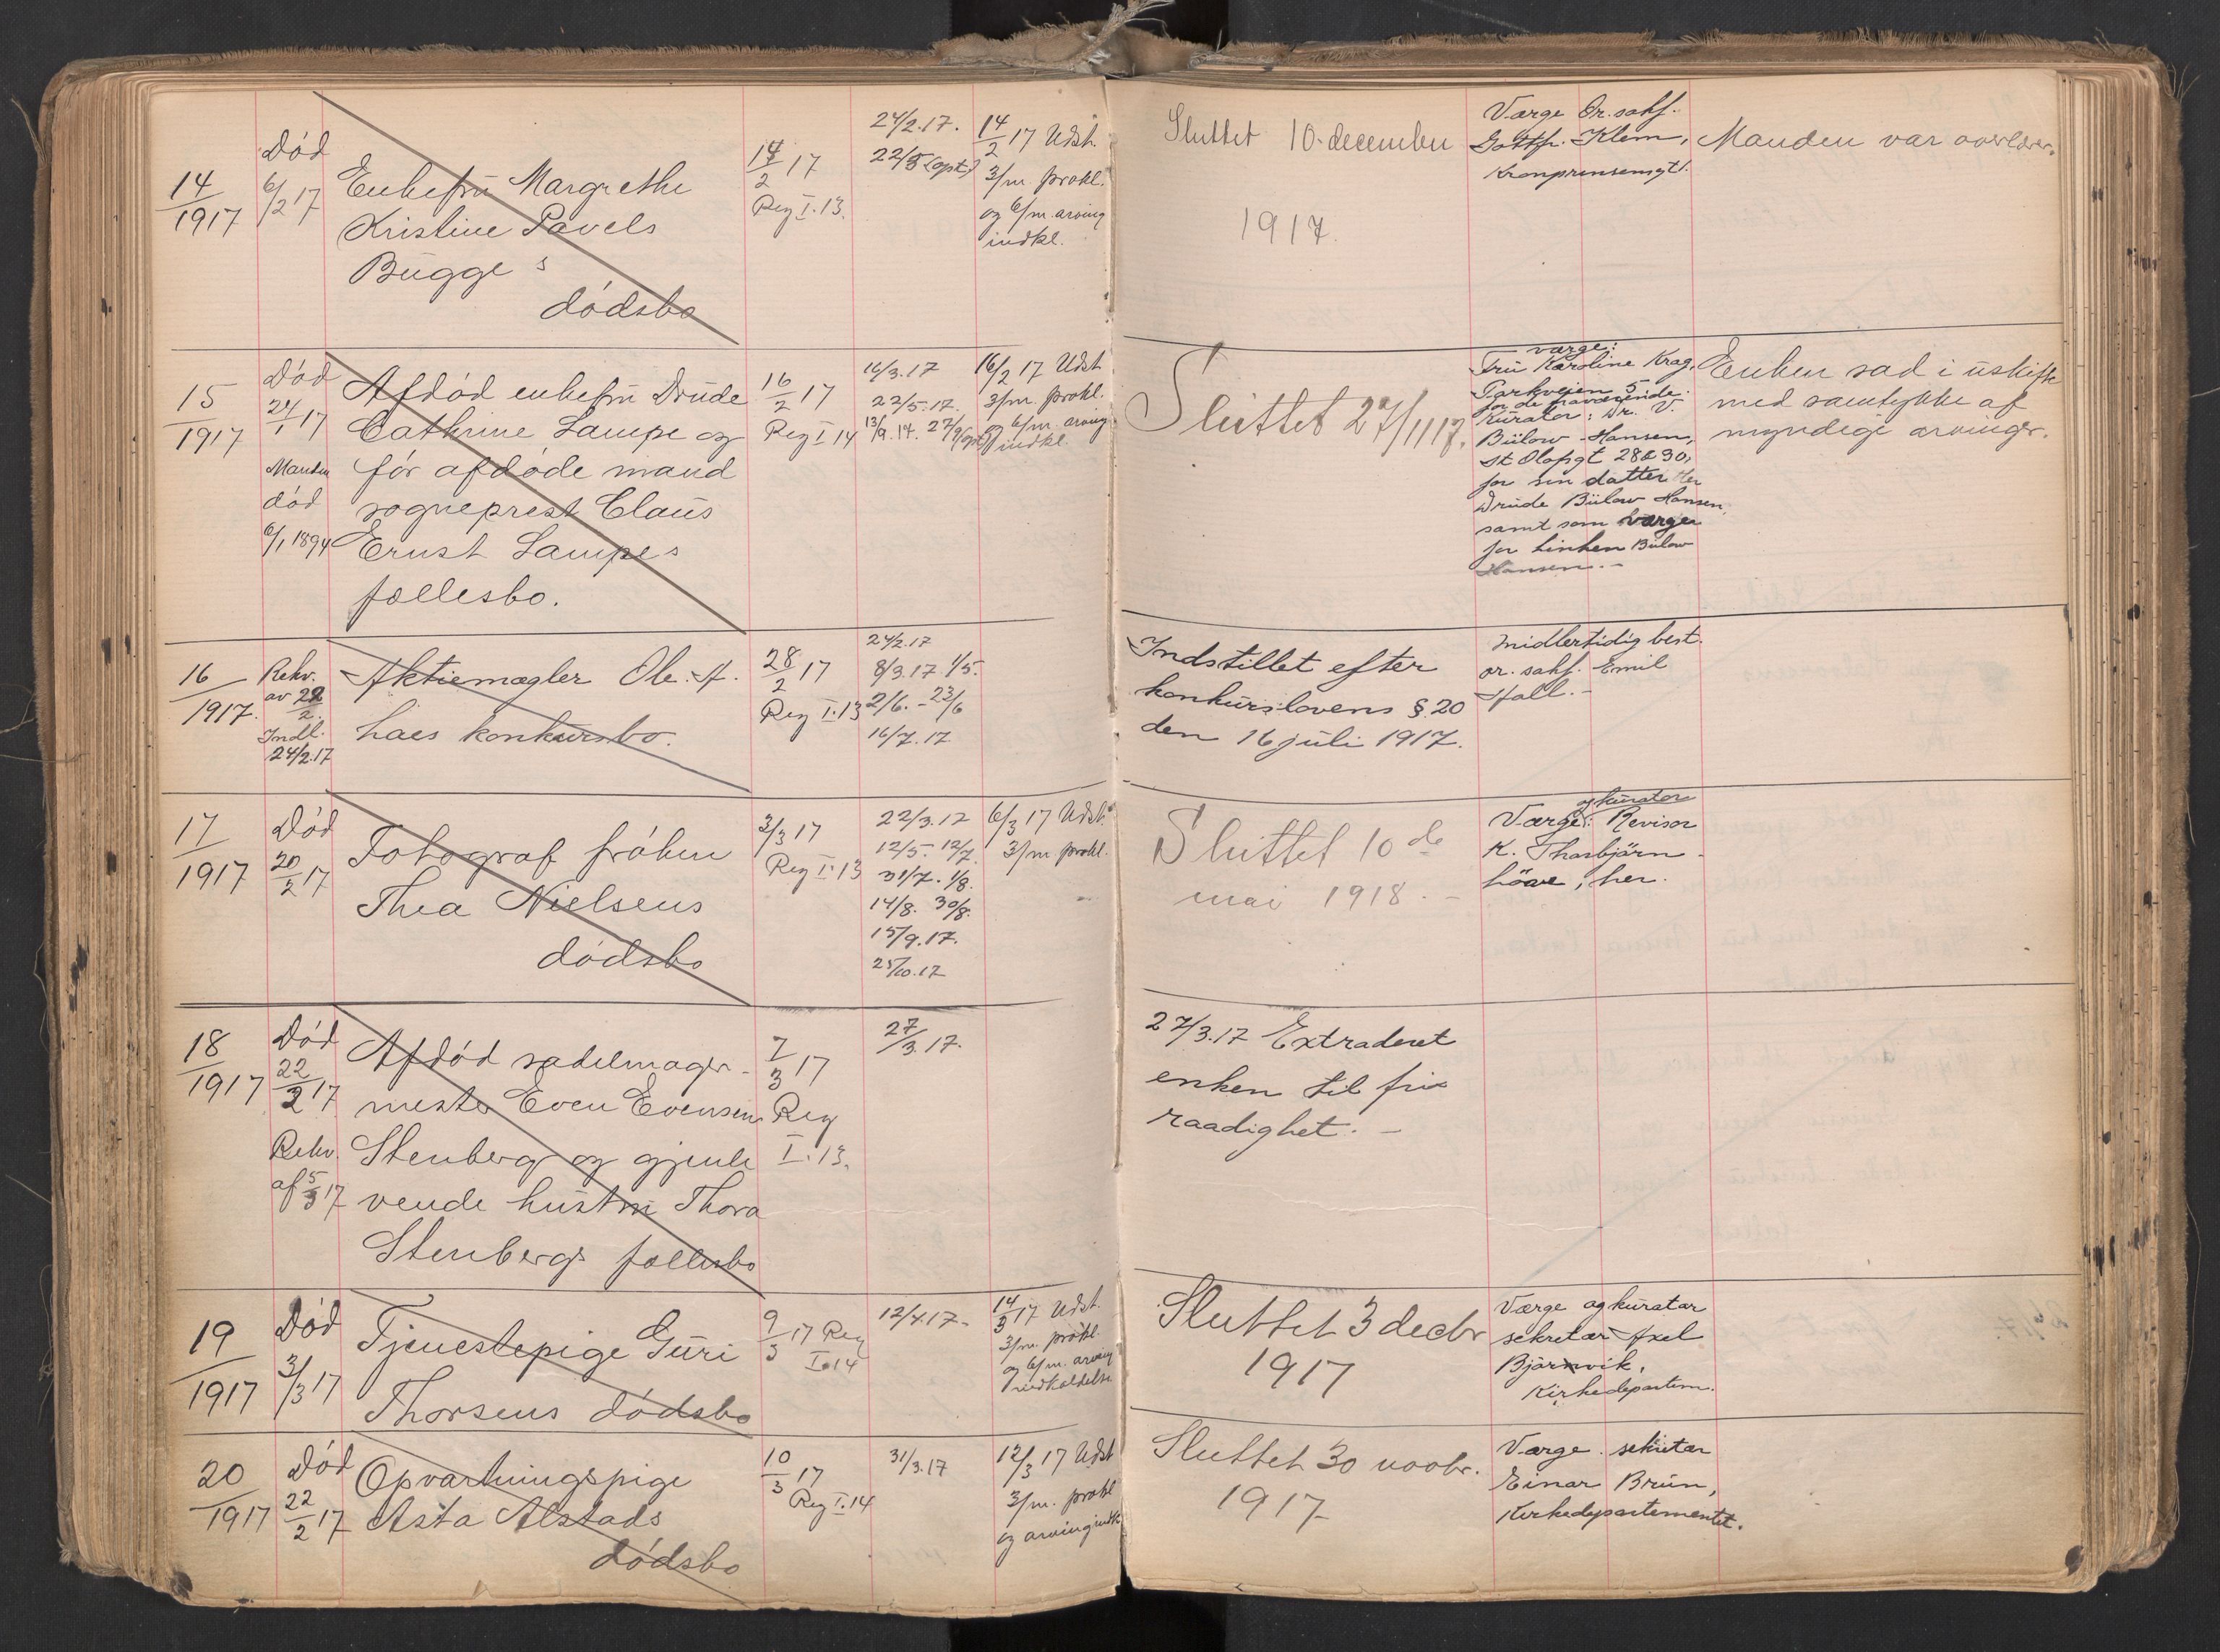 14/1917
Død
6/2 17
Enkefru Margrethe
Kristine Pavels
Bugge s
dødsbo
14/2 17
Reg I. 13.
24/2.17.
22/5 (opt)
14/2 17 Udst.
3/m prokl.
og 6/m. arving
indkl.
Sluttet 10. december
1917.
Værge Or. sakf.
Gottfr. Klem,
Kronprinsensgt.
Manden var overlærer.
15/1917
Død
24/1 17
Manden
død
6/1 1894
Afdød enkefru Drude
Cathrine Lampe og
før afdøde mand
sogneprest Claus
Ernst Lampes
fællesbo.
16/2 17
Reg I 14
16/3.17
22/5.17.
13/9.17. 27/9 (opt)
16/2 17 Udst
3/m. prokl.
og 6/m. arving
indkl
Sluttet 27/11 17.
værge:
Fru Karoline Krag,
Parkveien 5
for de fraværende.
Kurator: Dr. V.
Bülow-Hansen,
St Olafsgt 28 & 30,
for sin datter
Drude Bülow Hansen,
samt som værge
for Linken Bülow
Hansen.-
Enken sad i uskifte
med samtykke af
myndige arvinger.
16/1917.
Rekv.
av 22/2.
Indl.
24/2.17
Aktiemægler Ole. A.
Lies konkursbo.
28/2 17
Reg I.13
24/2.17
8/3.17 1/5.
2/6. - 23/6
16/7.17
Indstillet efter
konkurslovens § 20
den 16 juli 1917.
midlertidig best.
or. sakf. Emil
Hall.-
17/1917
Død
20/2 17
Fotograf frøken
Thea Nielsens
dødsbo
3/3 17
Reg I.13
22/3.17
12/5. 12/7.
31/7. 1/8.
14/8. 30/8.
15/9.17.
25/10.17
6/3 17 Udst.
3/m prokl.
Sluttet 10 de
mai 1918.-
og kurator
Værge: Revisor
K. Thorbjørn-
her.
18/1917
Død
22/2 17
Rekv.
af 5/3 17
Afdød sadelmager-
mester Even Evensen
Stenberg og gjenle
vende hustru Thora
Stenbergs fællesbo
7/3 17
Reg
I.13.
27/3.17.
27/3.17 Extraderet
enken til fri
raadighet.-
19/1917
Død
3/3 17
Tjenestepige Guri
Thorsens dødsbo
9/3 17 Reg
I. 14
12/4.17-
14/3 17 Udst.
3/m. prokl.
og 6/m. arving
indkaldelse
Sluttet 3 decbr
1917
Værge og kurator
sekretær Axel
Bjørnvik,
Kirkedepartem.
20/1917
Død
22/2 17
Opvartningspige
Asta Alstads
dødsbo
10/3 17
Reg I.14
31/3.17
12/3 17 Udst
3/m. prokl
og arvingindk
Sluttet 30 novbr.
1917-
Værge. sekretær
Einar Brun,
Kirkedepartementet.